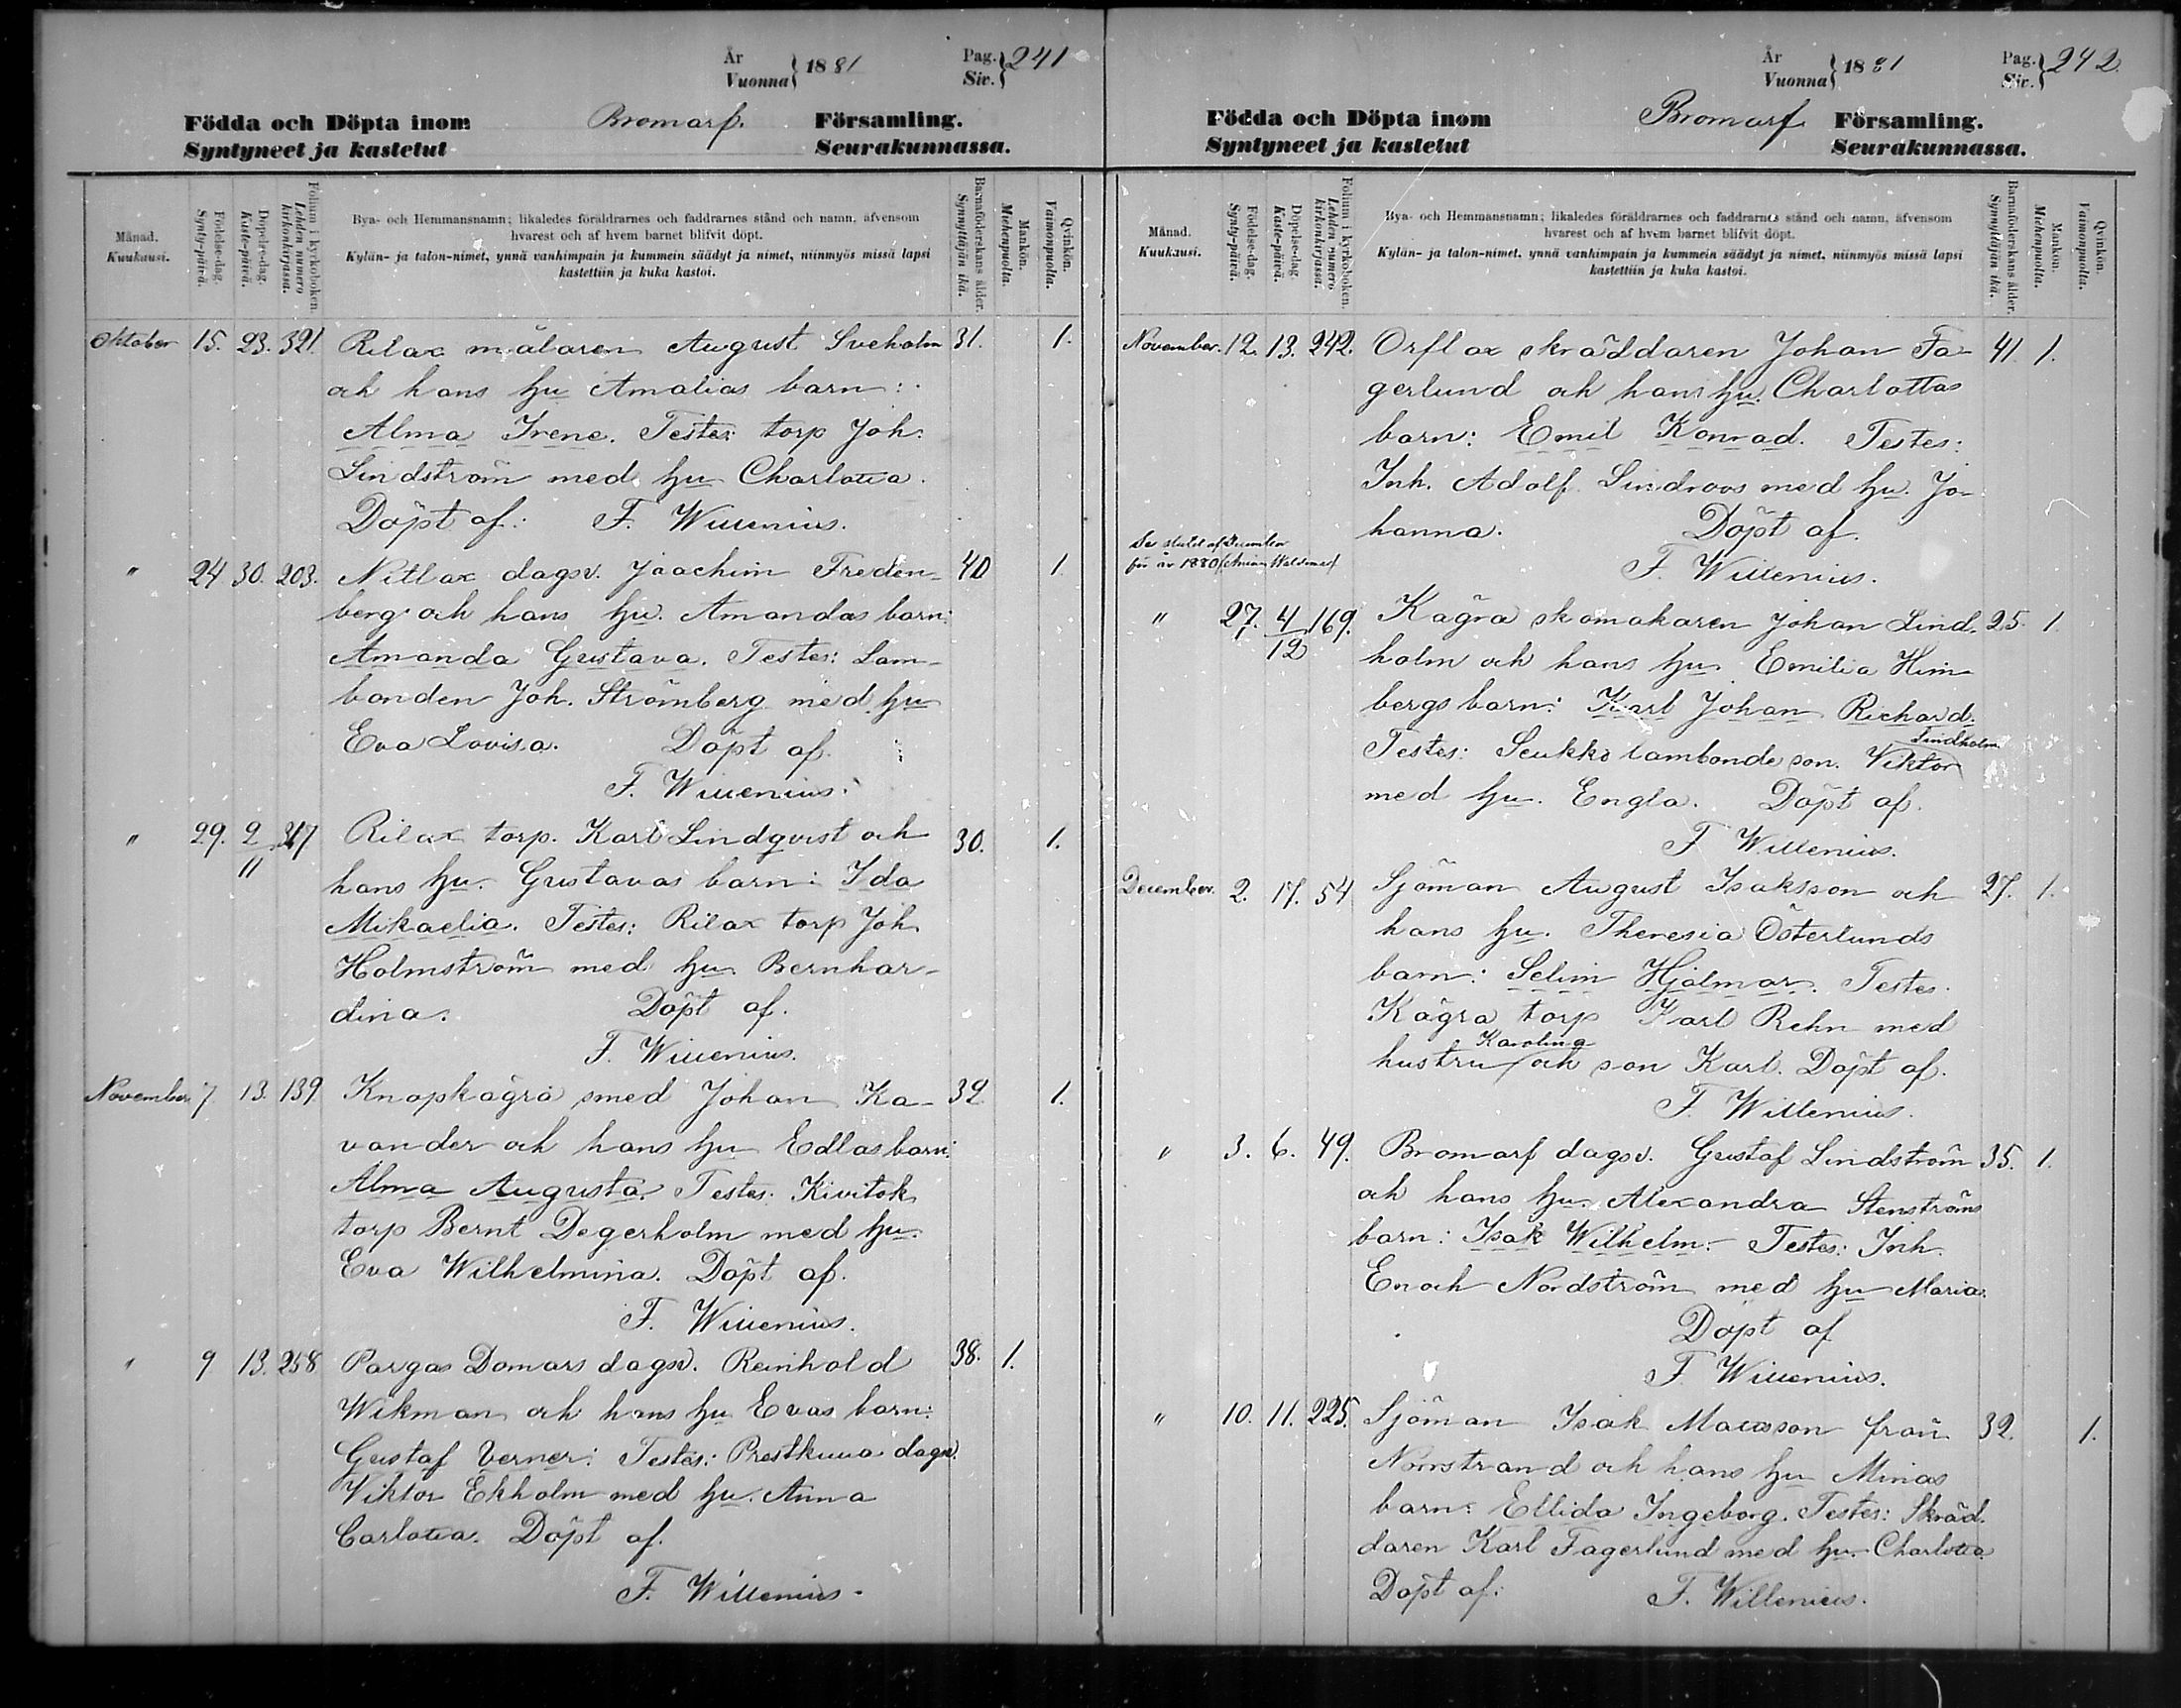 År
Vuonna } 1881
Pag.
Siv. } 241
Födda och Döpta inom Bromarf. Församling.
Syntyneet ja kastetut Seurakunnassa.
Månad.
Kuukausi.
Födelse-dag.
Synty-päivä.
Döpelse-dag.
Kaste-päivä.
Folium i kyrkoboken.
Lehden numero kirkonkirjassa.
Bya- och Hemmansnamn; likaledes föräldrarnes och faddrarnes stånd och namn, äfvensom
hvarest och af hvem barnet blifvit döpt.
Kylän- ja talon-nimet, ynnä vanhimpain ja kummein säädyt ja nimet, niinmyös missä lapsi
kastettiin ja kuka kastoi.
Barnaföderskans ålder.
Synnyttäjän ikä.
Mankön.
Miehenpuolta.
Qvinkön.
Vaimonpuolta.
Oktober 15. 23. 321. Rilax målaren August Sveholm 31. 1.
och hans hu Amalias barn:
Alma Irene. Testes: torp Joh.
Lindström med hu Charlotta.
Döpt af: F. Willenius.
" 24 30. 203. Nitlax dagsv. Joachim Freden- 40 1.
berg och hans hu. Amandas barn:
Amanda Gustava. Testes: Lam-
bonden Joh. Strömberg med hu
Eva Lovisa. Döpt af.
F. Willenius.
" 29. 2/11 317 Rilax torp. Karl Lindqvist och 30. 1.
hans hu. Gustavas barn: Ida
Mikaelia. Testes: Rilax torp Joh.
Holmström med hu. Bernhar-
dina. Döpt af.
F. Willenius.
November 7. 13. 139. Knapkägra smed Johan Ka- 32. 1.
vander och hans hu Edlas barn:
Alma Augusta. Testes: Kivitok
torp Bernt Degerholm med hu.
Eva Wilhelmina. Döpt af.
F. Willenius.
" 9 13. 258 Pargas Domars dagsv. Reinhold 38. 1.
Wikman och hans hu Evas barn:
Gustaf Verner. Testes: Prestkulla dagsv.
Viktor Ekholm med hu. Anna
Carlotta. Döpt af.
F. Willenius.
År
Vuonna } 1881
Pag.
Siv. } 242.
Födda och Döpta inom Bromarf Församling.
Syntyneet ja kastetut Seurakunnassa.
Månad.
Kuukausi.
Födelse-dag.
Synty-päivä.
Döpelse-dag.
Kaste-päivä.
Folium i kyrkoboken.
Lehden numero kirkonkirjassa.
Bya- och Hemmansnamn; likaledes föräldrarnes och faddrarnes stånd och namn, äfvensom
hvarest och af hvem barnet blifvit döpt.
Kylän- ja talon-nimet, ynnä vanhimpain ja kummein säädyt ja nimet, niinmyös missä lapsi
kastettiin ja kuka kastoi.
Barnaföderskans ålder.
Synnyttäjän ikä.
Mankön.
Miehenpuolta.
Qvinkön.
Vaimonpuolta.
November. 12. 13. 242. Orflax skräddaren Johan Fa- 41 1.
gerlund och hans hu. Charlottas
barn: Emil Konrad. Testes:
Inh. Adolf Lindroos med hu. Jo-
hanna. Döpt af.
F. Willenius.
Se slutet af December
för år 1880 Waldemar
" 27. 4/12 169. Kägra skomakaren Johan Lind- 25. 1.
holm och hans hu. Emilia Him-
bergs barn: Karl Johan Richard.
Testes: Seukko lambonde son. Viktor Lindholm
med hu. Engla. Döpt af.
F. Willenius.
December. 2. 17. 54 Sjöman August Isaksson och 27. 1.
hans hu. Theresia Österlunds
barn: Selim Hjalmar. Testes.
Kägra torp Karl Rehn med
hustru Karolina och son Karl. Döpt af.
F. Willenius.
" 3. 6. 49. Bromarf dagsv. Gustaf Lindström 35. 1.
och hans hu. Alexandra Stenströms
barn: Isak Wilhelm. Testes: Inh.
Enoch Nordström med hu Maria.
Döpt af
F. Willenius.
" 10. 11. 225. Sjöman Isak Mattsson från 32. 1.
Norrstrand och hans hu Minas
barn: Ellida Ingeborg. Testes: Skräd-
daren Karl Fagerlund med hu. Charlotta
Döpt af: F. Willenius.